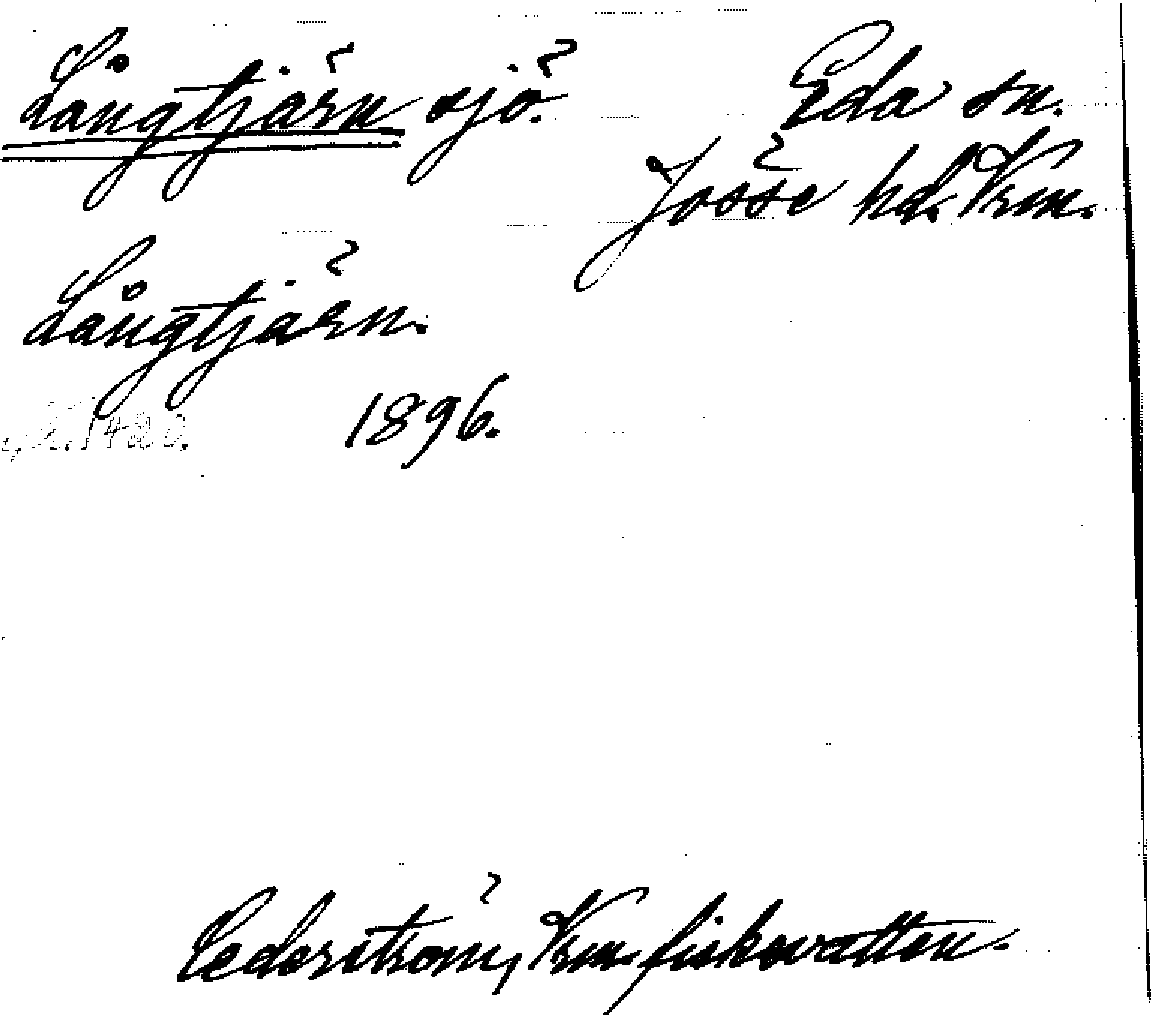 Långtjärn sjö. Eda sn.
Jösse hd. Vrm.
Långtjärn.
1896.
Cederström, Vrm. fiskevatten.